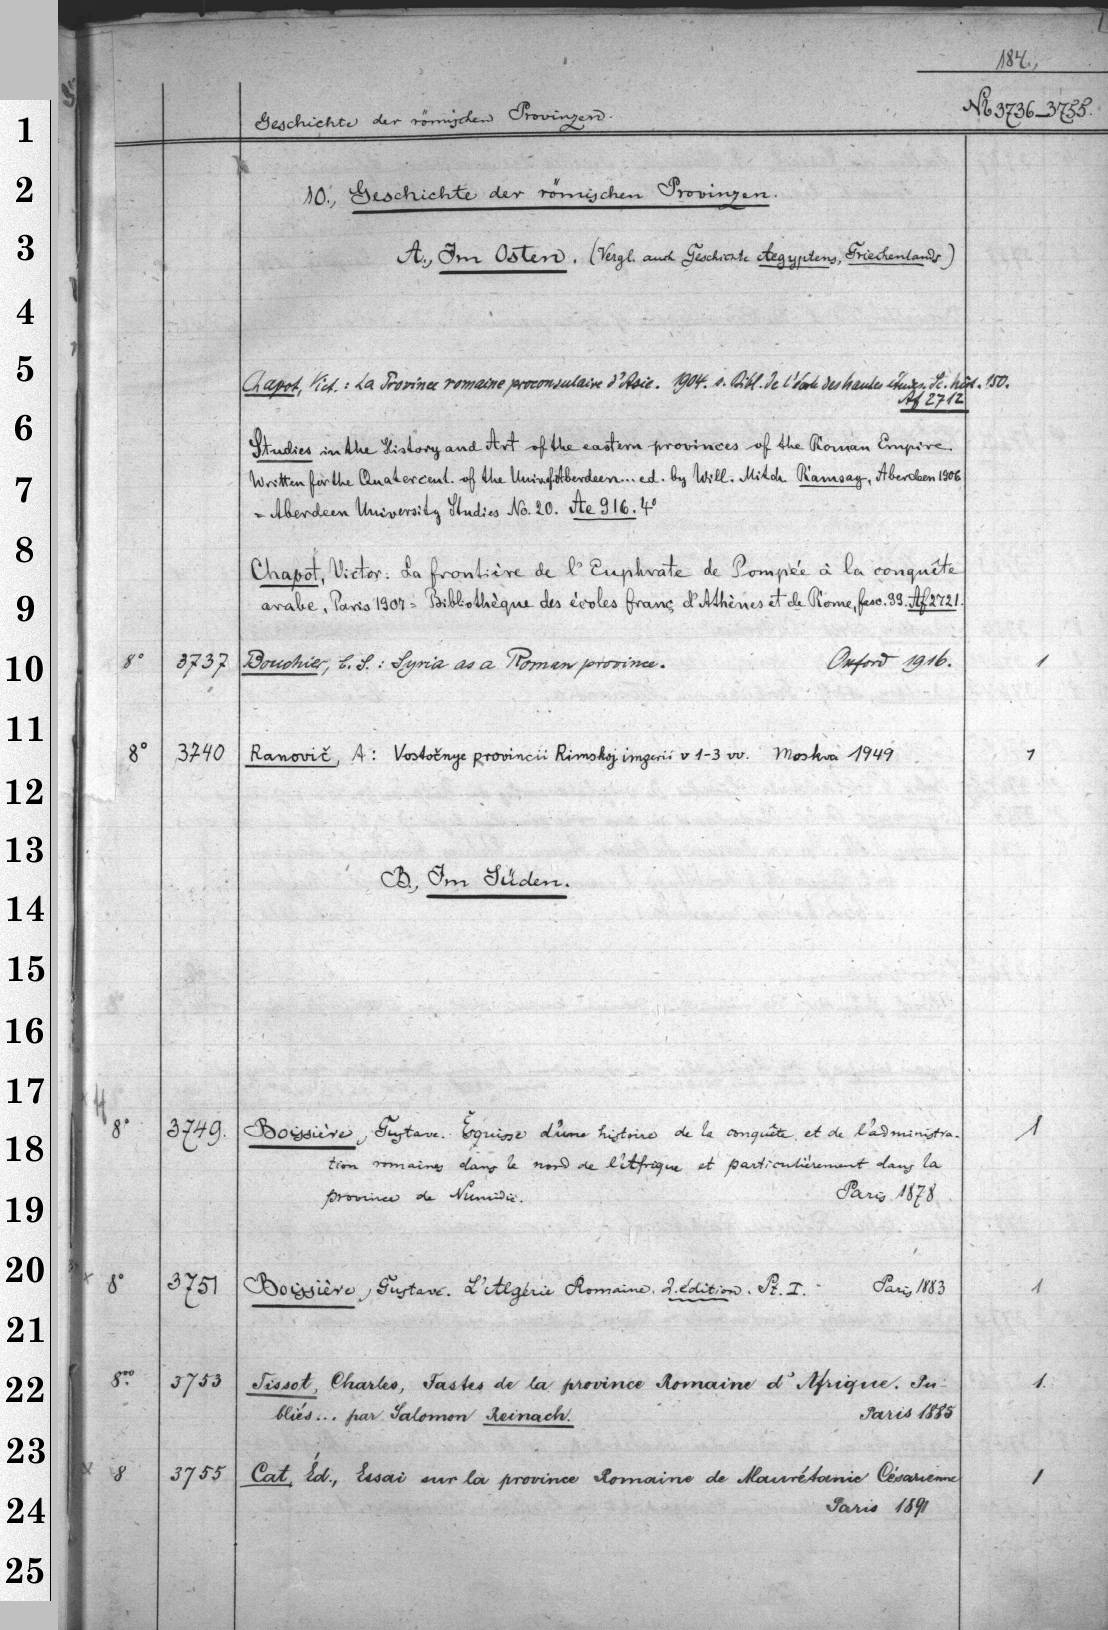 184.,
Geschichte der römischen Provinzen.
No 3736-3755.
10., Geschichte der römischen Provinzen.
A., Im Osten. (Vergl. auch Geschichte Aegyptens, Griechenlands)
Chapot, Vict.: La Province romaine proconsulaire d'Asie. 1904. s. Bibl. de l'école des hautes études. Sc. hist. 150.
Af 2712
Studies in the History and Art of the eastern provinces of the Roman Empire.
Written for the Quatercent. of the Univ. of Aberdeen... ed. by Will. Mitch Ramsay, Aberdeen 1906
= Aberdeen University Studies No. 20. Ae 916. 4°
Chapot, Victor: La frontière de l'Euphrate de Pompée à la conquête
arabe, Paris 1907 = Bibliothèque des écoles franç d'Athènes et de Rome, fasc. 99. Af 2721.
8° 3737 Bouchier, E. S.: Syria as a Roman province. Oxford 1916. 1
8° 3740 Ranovič, A: Vostočnye provincii Rimskoj imperii v 1-3 vv. Moskva 1949 1
B., Im Süden.
8° 3749. Boissière, Gustave. Esquisse d'une histoire de la conquête et de l'administra-
tion romaines dans le nord de l'Afrique et particulièrement dans la
province de Numidie. Paris 1878 1
8° 3751 Boissière, Gustave. L'Algérie Romaine. 2. édition. Pt. I. - Paris 1883 1
8°° 3753 Tissot, Charles, Fastes de la province Romaine d'Afrique. Pu- 1.
bliés... par Salomon Reinach. Paris 1885
8 3755 Cat, Éd., Essai sur la province Romaine de Maurétanie Césarienne 1
Paris 1891
1
2
3
4
5
6
7
8
9
10
11
12
13
14
15
16
17
18
19
20
21
22
23
24
25